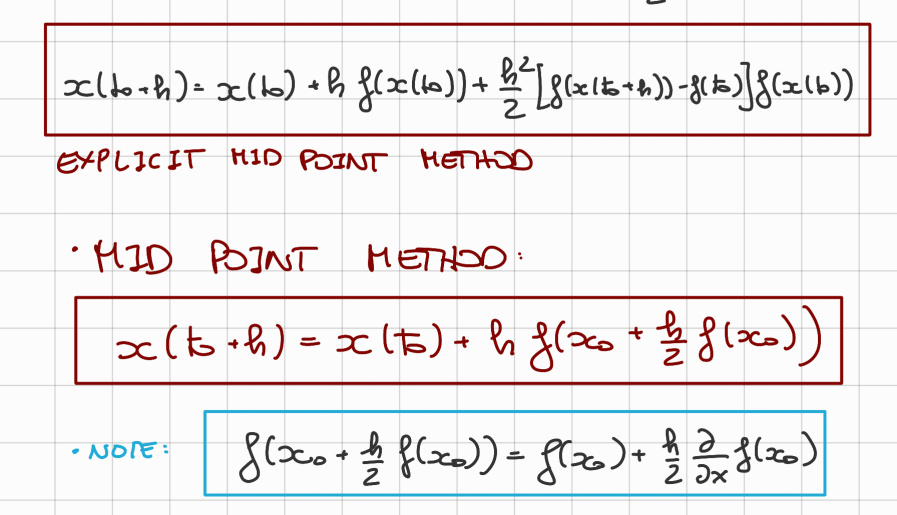 x(t₀+h) = x(t₀) + h f(x(t₀)) + h²/2 [f(x(t₀+h)) - f(t₀)] f(x(t₀))
EXPLICIT MID POINT METHOD
· MID POINT METHOD:
x(t₀+h) = x(t₀) + h f(x₀ + h/2 f(x₀))
· NOTE: f(x₀ + h/2 f(x₀)) = f(x₀) + h/2 ∂/∂x f(x₀)